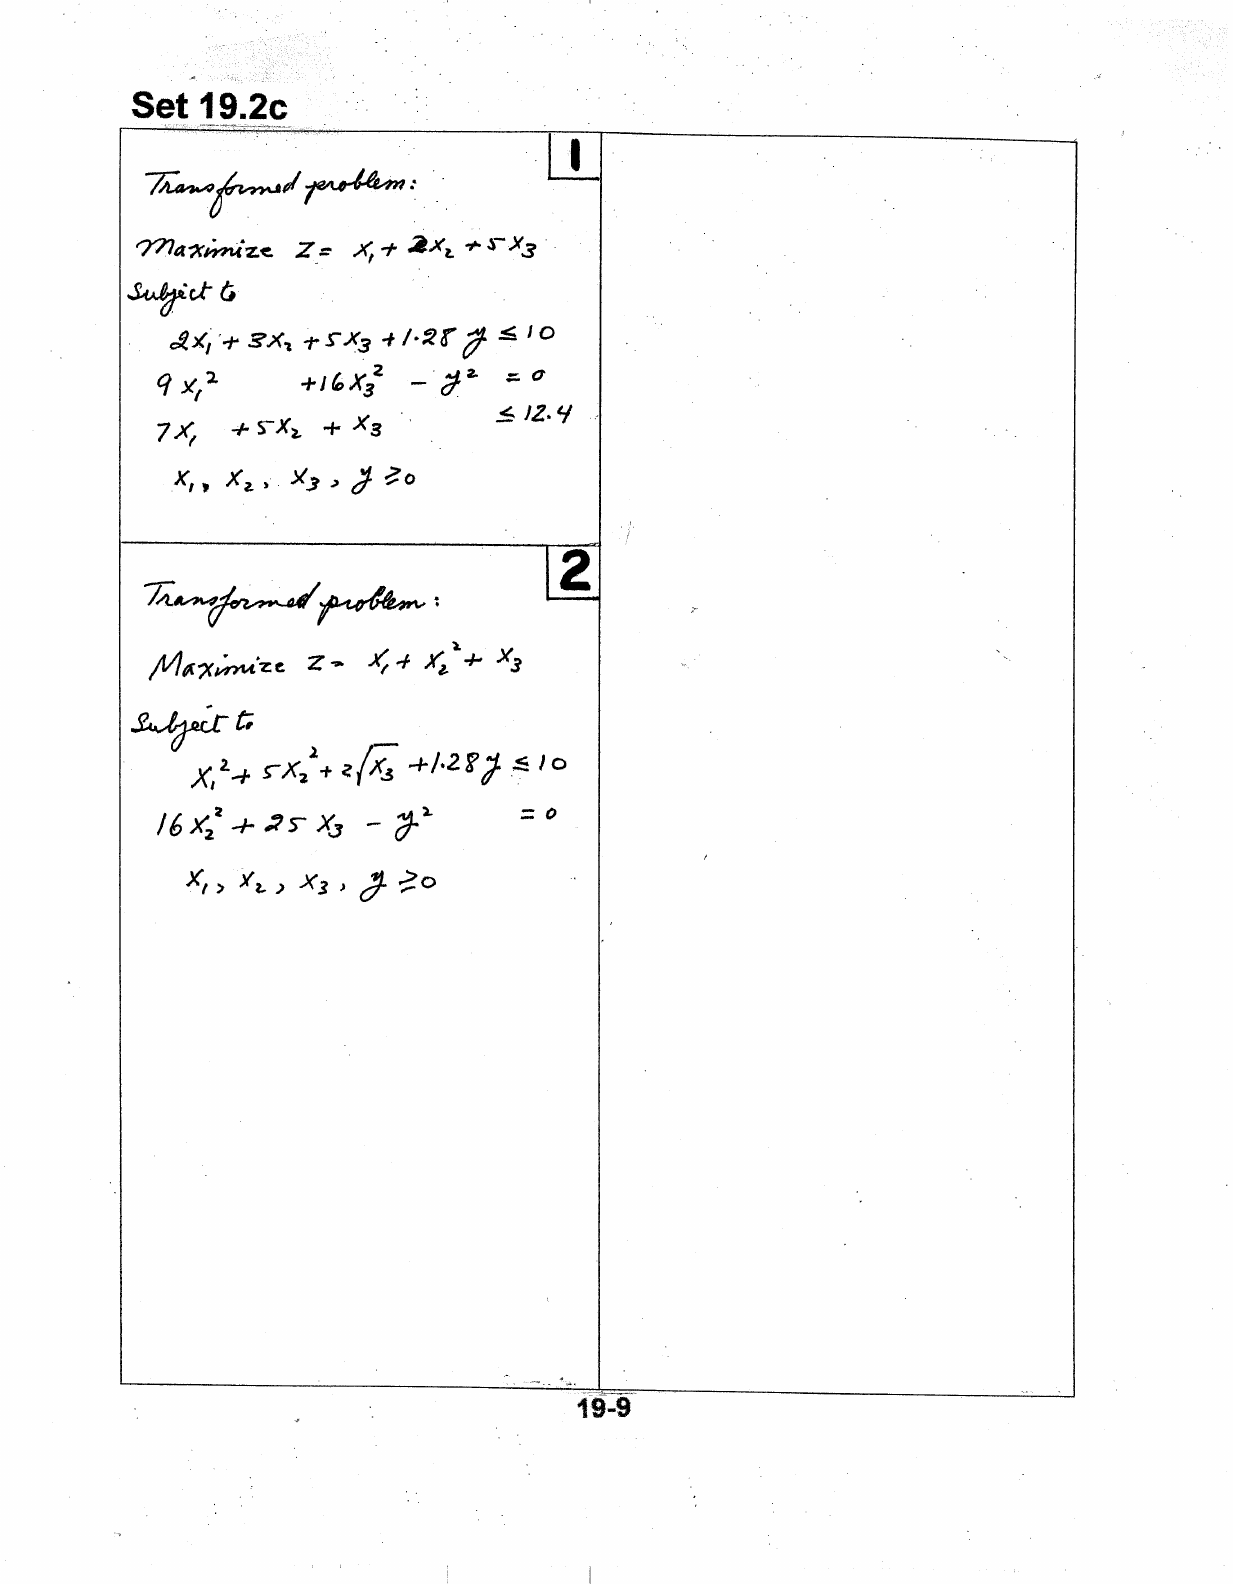 Set 19.2c
1
Transformed problem:
Maximize Z = x₁ + 2x₂ + 5x₃
Subject to
2x₁ + 3x₂ + 5x₃ + 1.28 y ≤ 10
9 x₁² + 16x₃² - y² = 0
7x₁ + 5x₂ + x₃ ≤ 12.4
x₁, x₂, x₃, y ≥ 0
2
Transformed problem:
Maximize Z = x₁ + x₂² + x₃
Subject to
x₁² + 5x₂² + 2√x₃ + 1.28 y ≤ 10
16 x₂² + 25 x₃ - y² = 0
x₁, x₂, x₃, y ≥ 0
19-9